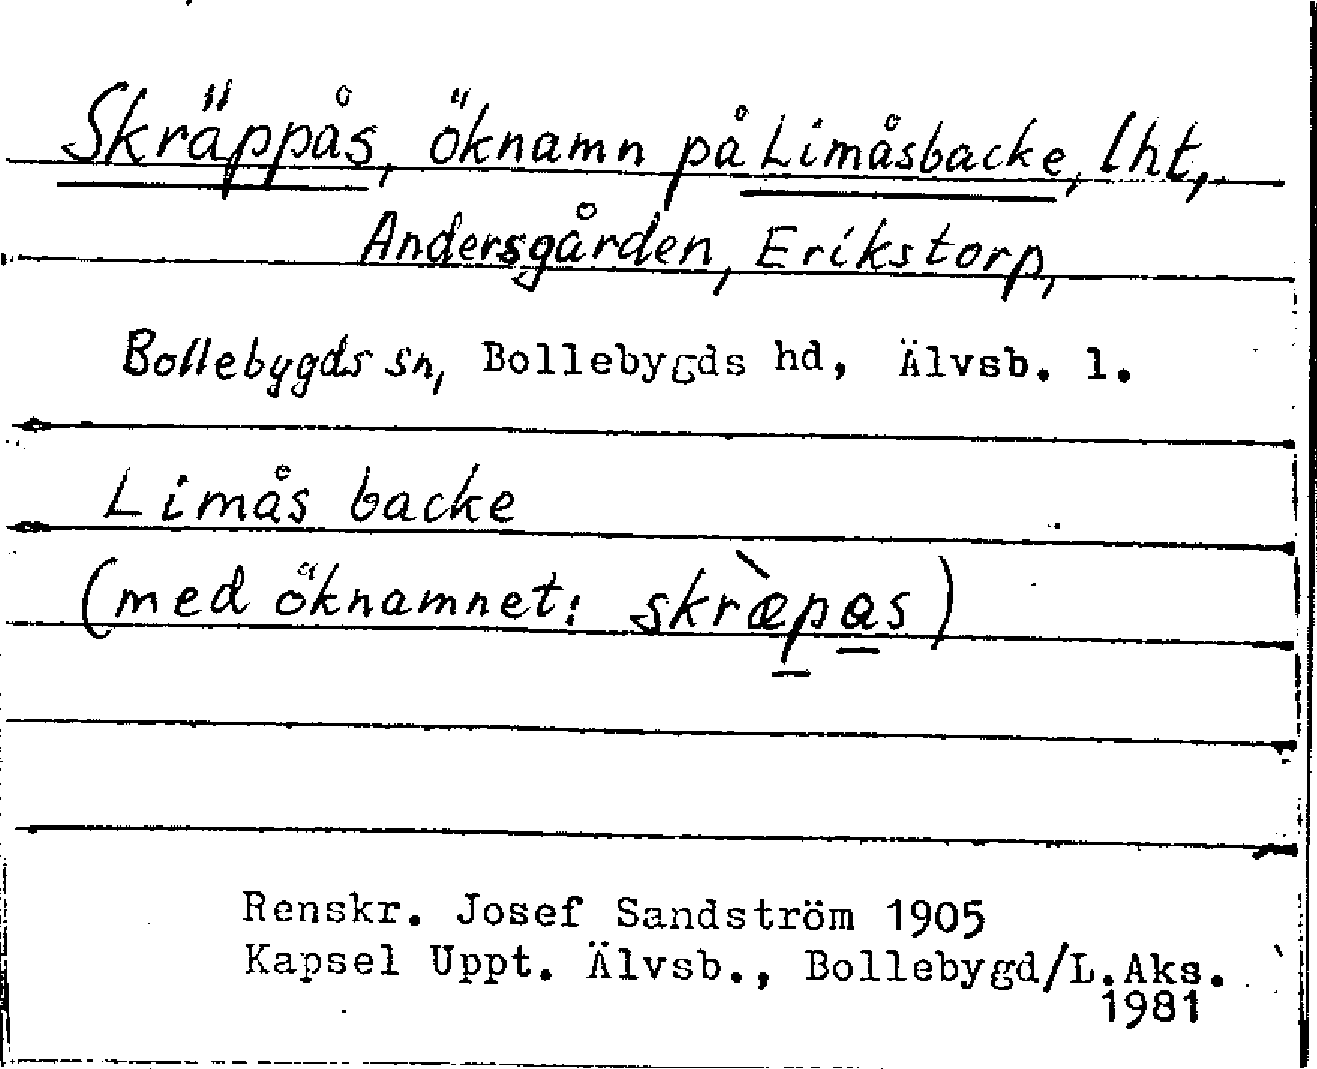 Skräppås, öknamn på Limåsbacke, lht,
Andersgården, Erikstorp,
Bollebygds sn, Bollebygds hd, Älvsb. l.
Limås backe
(med öknamnet: skræ̀pas)
Renskr. Josef Sandström 1905
Kapsel Uppt. Älvsb., Bollebygd/L.Aks.
1981